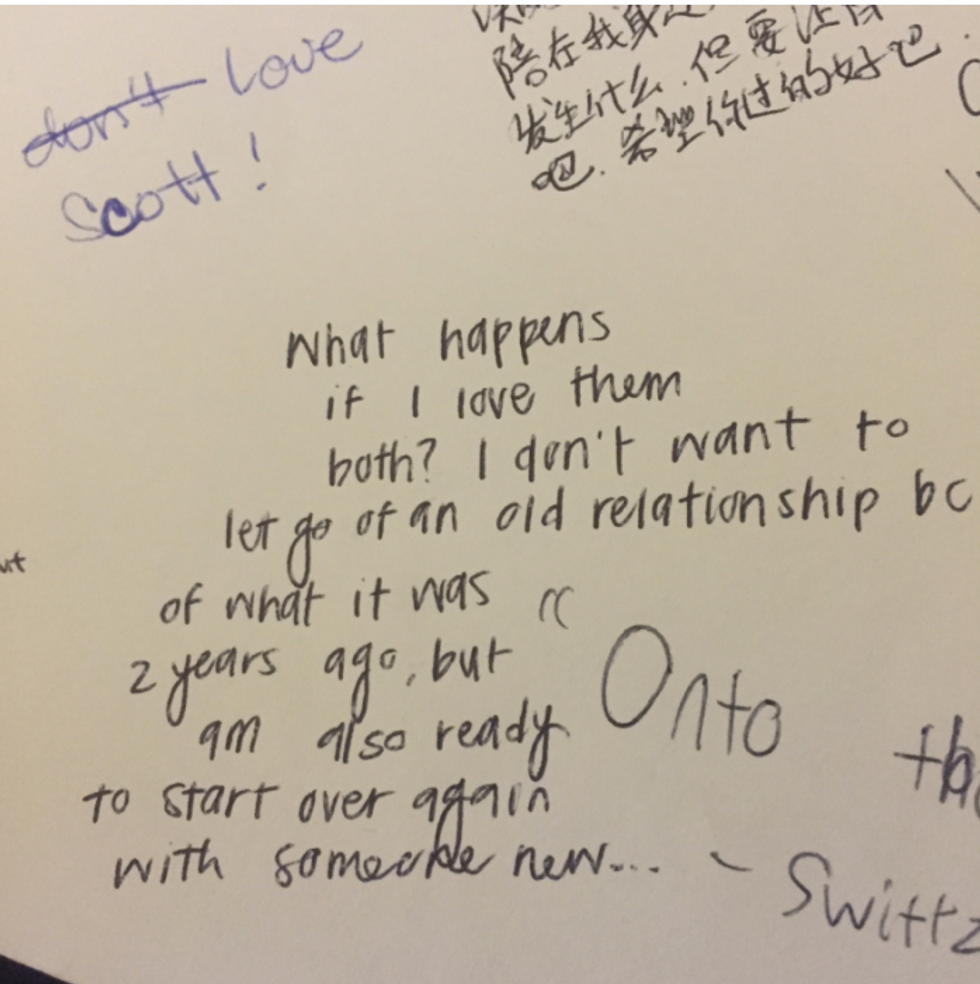 don't love
scott!
陪在我身边
发生什么.但要
吧.希望你过的好吧.
What happens
if I love them
both? I don't want to
let go of an old relationship bc
of what it was
2 years ago, but
am also ready
to start over again
with someone new... ~
Onto
Swittz